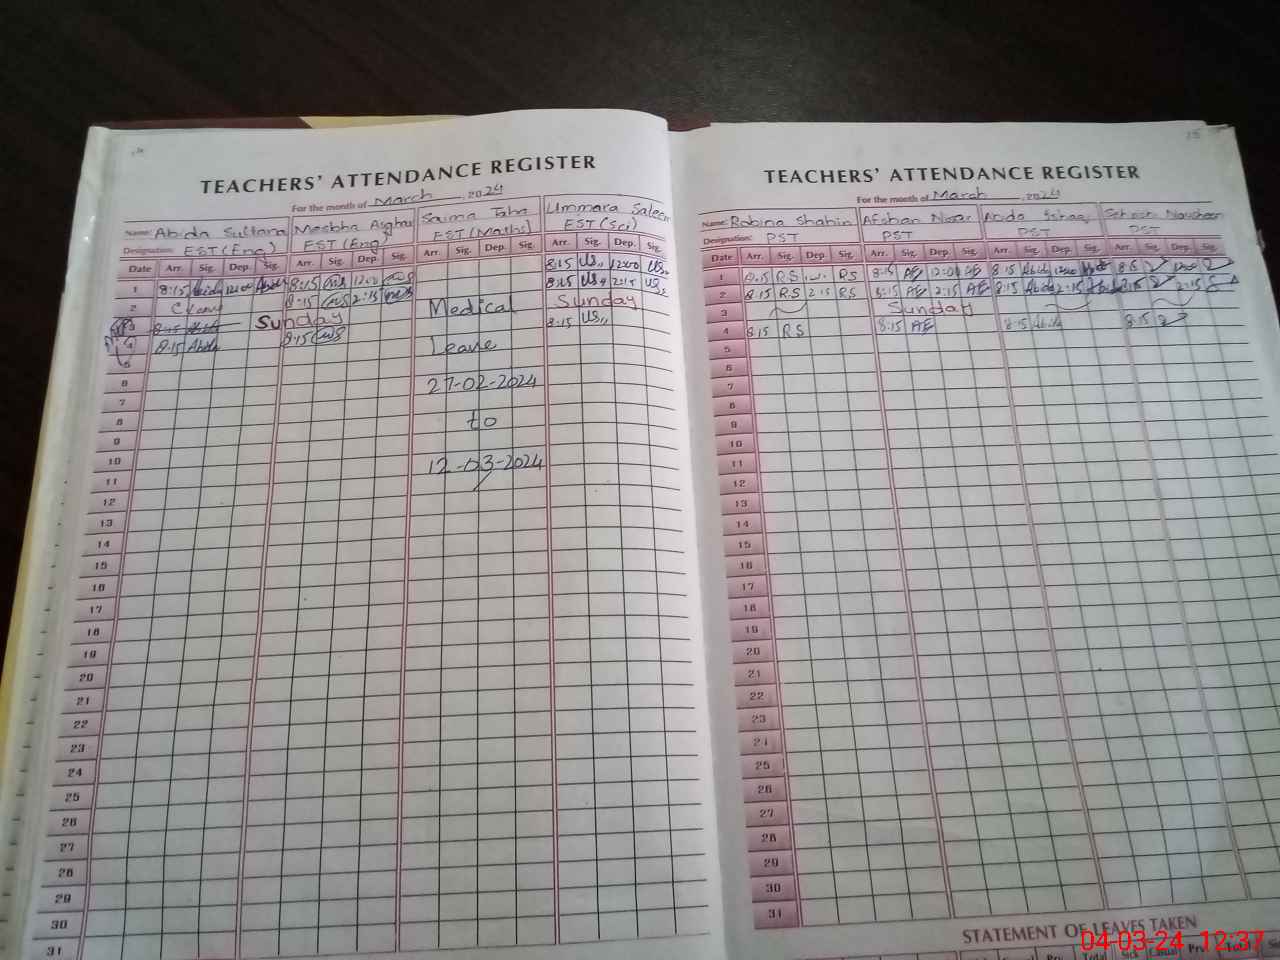 TEACHERS' ATTENDANCE REGISTER
For the month of March, 2024
Name: Abida Sultana Mesbha Asghar Saima Taha Ummara Saleem
Designation: EST (Eng) EST (Eng) EST (Maths) EST (Sci)
Date Arr. Sig. Dep. Sig. Arr. Sig. Dep. Sig. Arr. Sig. Dep. Sig. Arr. Sig. Dep. Sig.
1 8:15 Abida 12:00 Abida 8:15 12:00 8:15 US 12:00 US
2 C leave 8:15 2:15 Medical 8:15 US 2:15 US
3 8:15 Sunday Sunday
4 8:15 Abida 8:15 Leave 8:15 US
5
6 27-02-2024
7
8 to
9
10 12-03-2024
11
12
13
14
15
16
17
18
19
20
21
22
23
24
25
26
27
28
29
30
31
15
TEACHERS' ATTENDANCE REGISTER
For the month of March, 2024
Name: Robina Shahin Afshan Nisar Abida Ishaq Nousheen
Designation: PST PST PST PST
Date Arr. Sig. Dep. Sig. Arr. Sig. Dep. Sig. Arr. Sig. Dep. Sig. Arr. Sig. Dep. Sig.
1 8:15 RS RS 8:15 AE 12:00 AE 8:15 Abida 12:00 8:15 12:00
2 8:15 RS 2:15 RS 8:15 AE 2:15 AE 8:15 Abida 2:15 Abida 8:15 2:15
3 Sunday
4 8:15 RS 8:15 AE 8:15 Abida 8:15
5
6
7
8
9
10
11
12
13
14
15
16
17
18
19
20
21
22
23
24
25
26
27
28
29
30
31
STATEMENT OF LEAVES TAKEN
Total Sick Casual Pr. Total
04-03-24 12:37